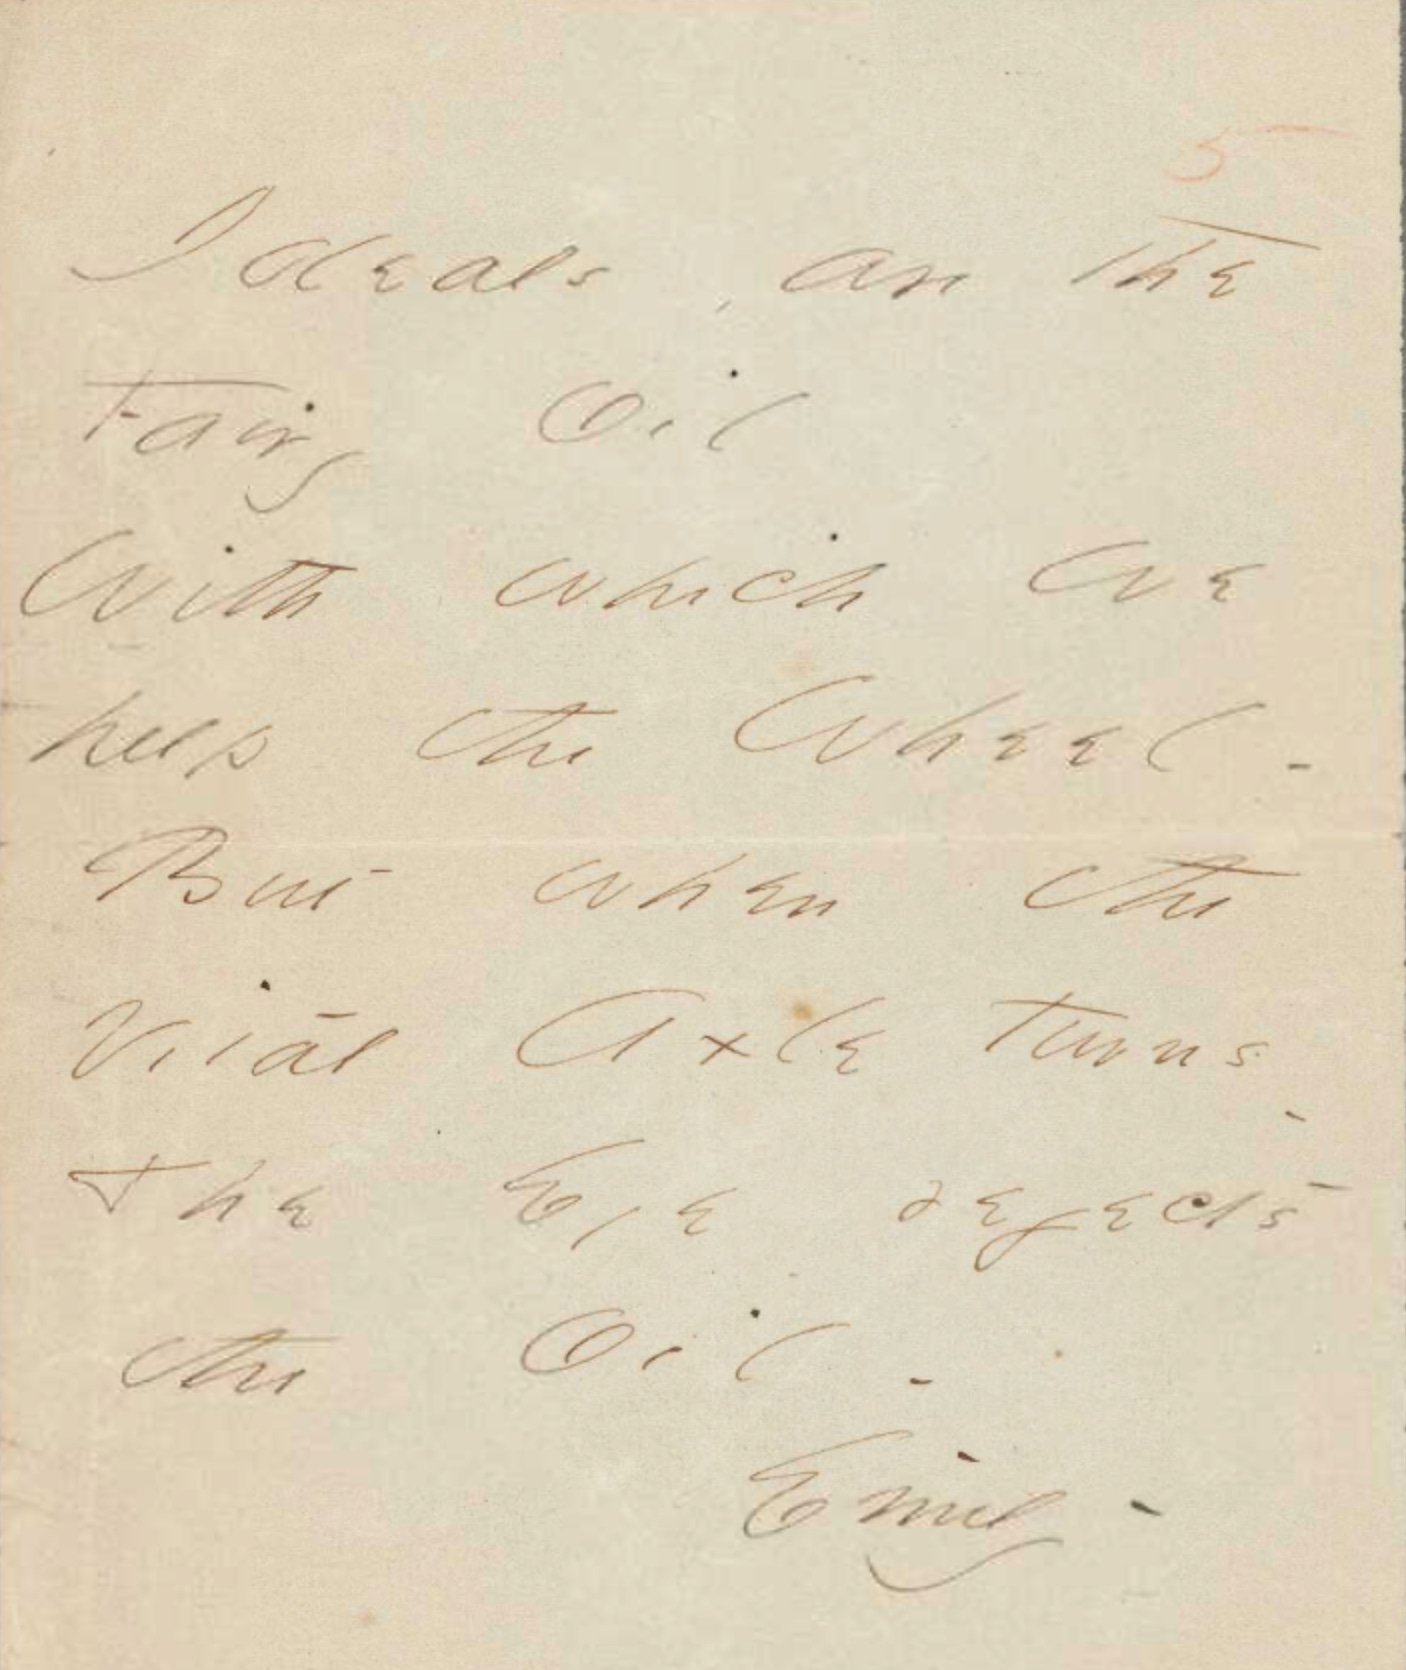 5
Ideals are the
Fairy Oil
With which we
help the Wheel -
But when the
Vital Axle turns
The Eye rejects
the Oil -
Emily -